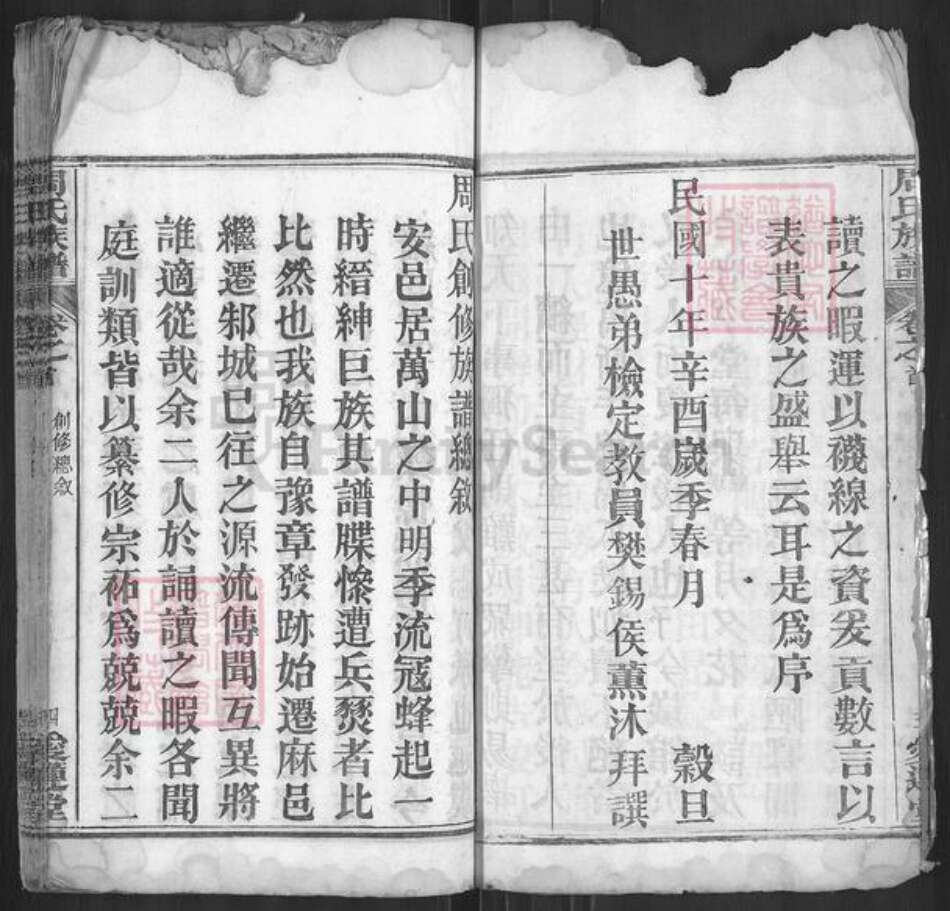 周氏族譜 卷之首
讀之暇運以襪線之資爰貢數言以
表貴族之盛舉云耳是爲序
民國十年辛酉嵗季春月 穀旦
世愚弟檢定教員樊錫侯薰沐拜譔
周氏創修族譜總敘
安邑居萬山之中明季流冦蜂起一
時縉紳巨族其譜牒慘遭兵燹者比
比然也我族自豫章發跡始遷麻邑
繼遷邾城已往之源流傳聞互異將
誰適從哉余二人於誦讀之暇各聞
庭訓類皆以纂修宗祏爲兢兢余二
周氏族譜 卷之首 創修總敘 四 愛蓮堂
FamilySearch